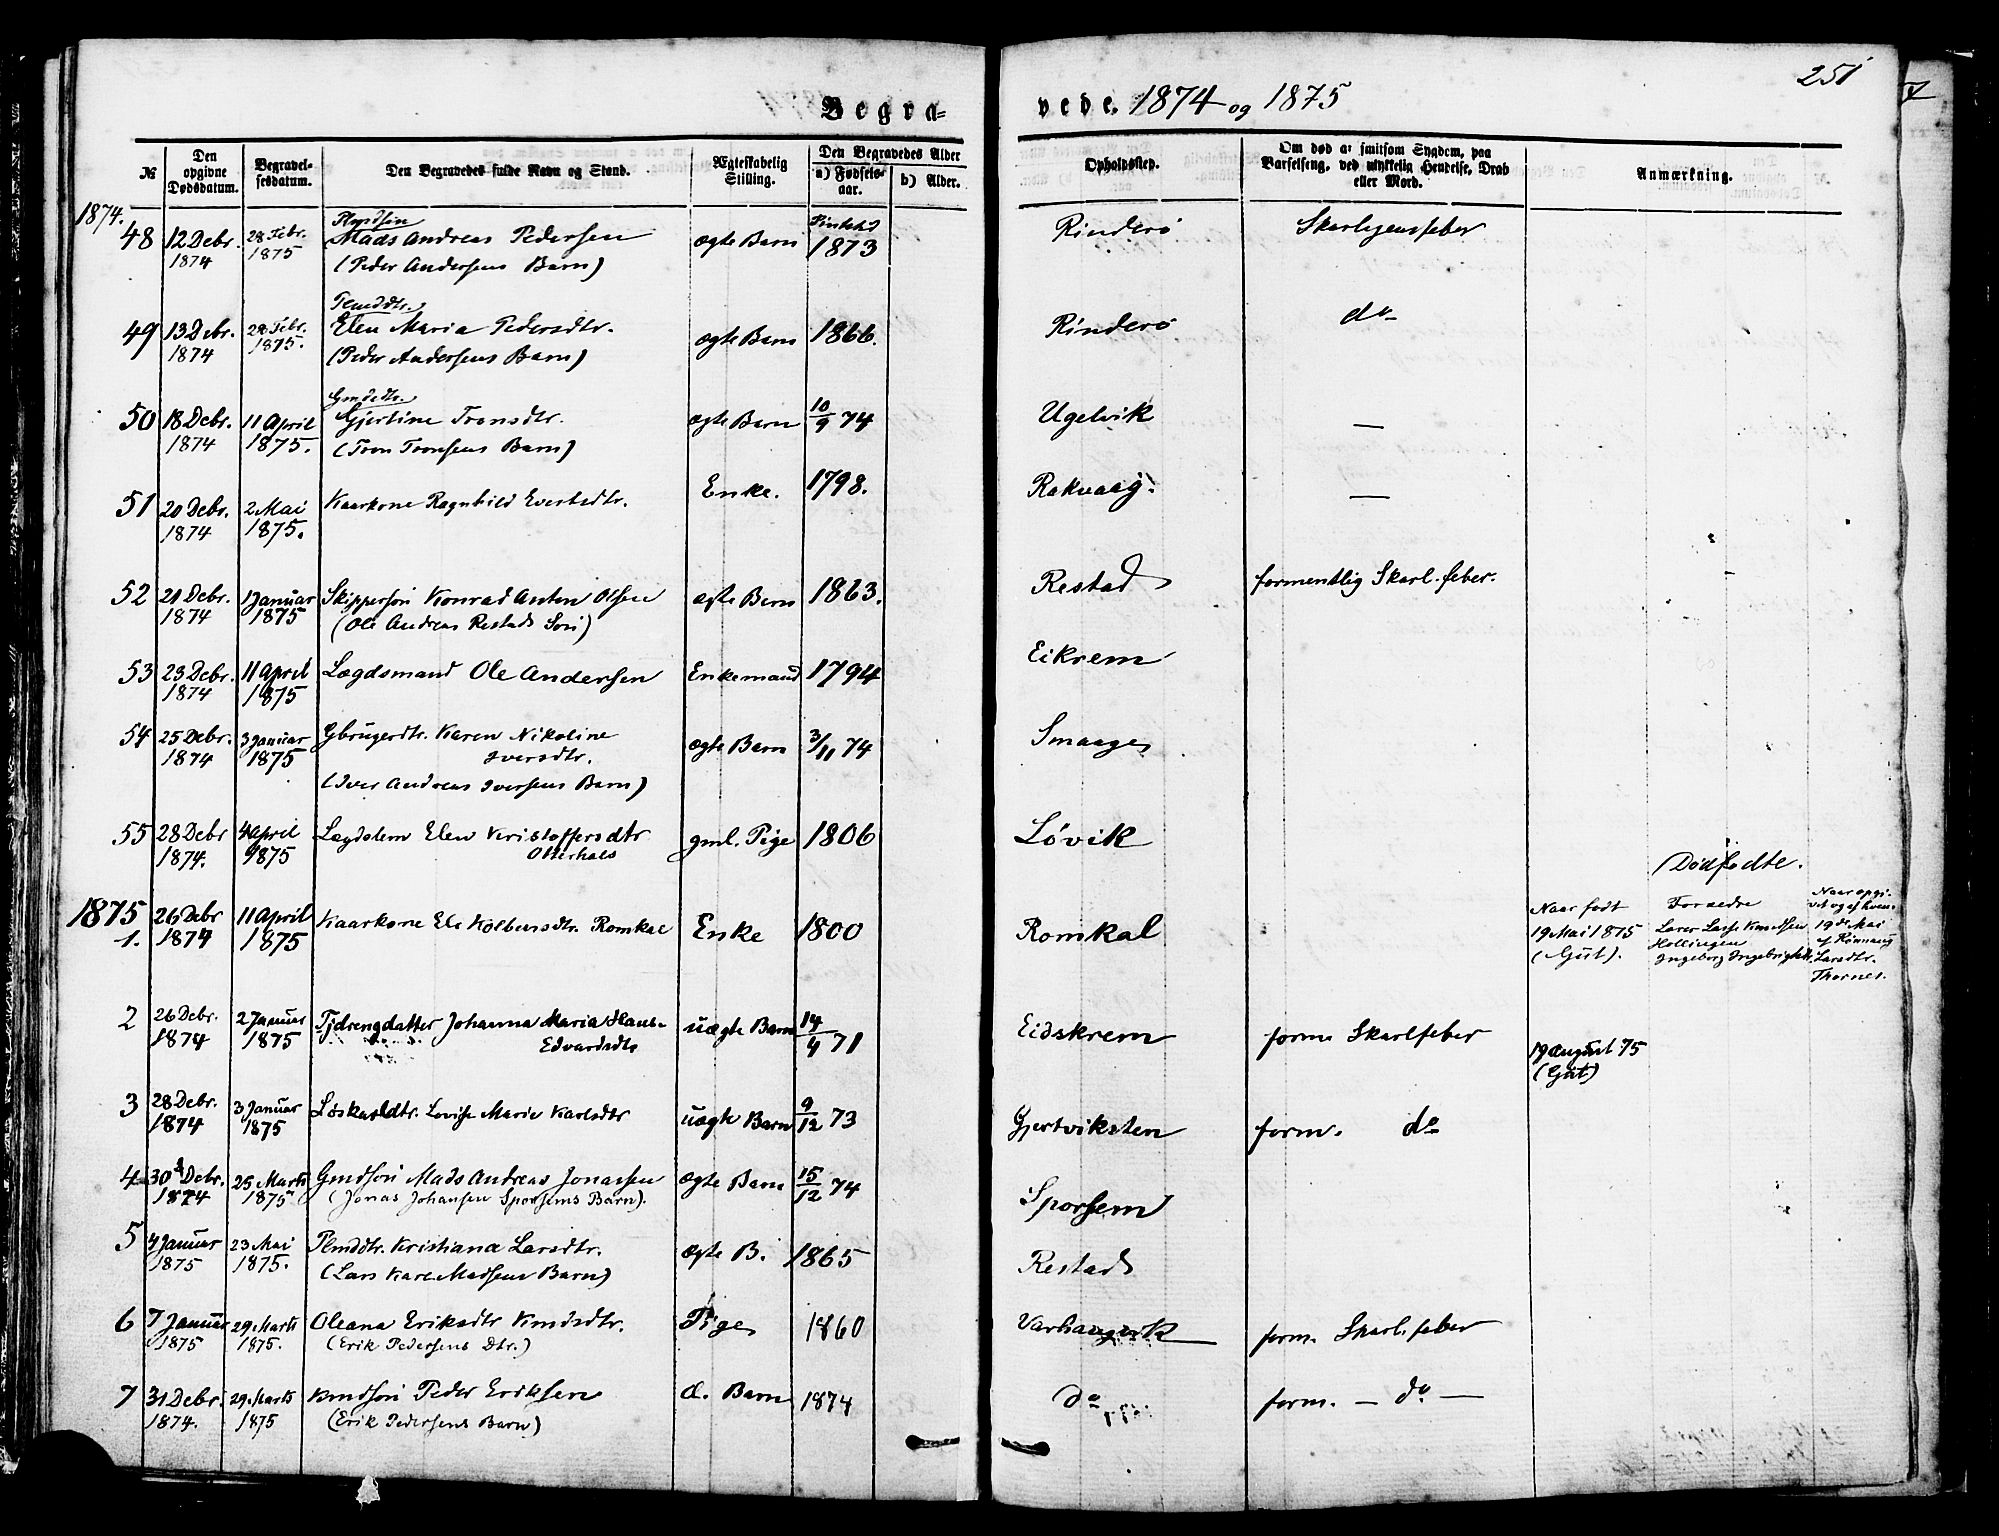 251
Begra-
vede. 1874 og 1875
№
Den opgivne Dødsdatum.
Begravelsesdatum.
Den Begravedes fulde Navn og Stand.
Ægteskabelig Stilling.
Den Begravedes Alder
a) Fødselsaar.
b) Alder.
Opholdssted.
Om død af smitsom Sygdom, paa Barselseng, ved ulykkelig Hendelse, Drab eller Mord.
Anmærkning.
1874.
48 12 Debr. 1874 28 Febr. 1875 Mads Andreas Pedersen ægte Barn 1873 Rinderø Skarlagensfeber
(Peder Andersens Barn)
49 13 Debr. 1874 28 Febr. 1875. Elen Maria Pedersdtr. ægte Barn 1866. Rinderø do
(Peder Andersens Barn)
Gmddtr.
50 18 Debr. 1874 11 April 1875. Gjertine Tronsdtr. ægte Barn 10/9 74 Ugelvik —
(Tron Tronsens Barn)
51 20 Debr. 1874 2 Mai 1875. Kaarkone Ragnhild Evertsdtr. Enke. 1798. Rakvaag. —
52 21 Debr. 1874 1 Januar 1875 Skippersøn Konrad Anton Olsen ægte Barn 1863. Restad formentlig Skarl.feber.
(Ole Andreas Restads Søn)
53 23 Debr. 1874 11 April 1875 Lægdsmand Ole Andersen Enkemand 1794 Eikrem
54 25 Debr. 1874 3 Januar 1875 Gbrugerdtr. Karen Nikoline Iversdtr. ægte Barn 3/11 74 Smaage
(Iver Andreas Iversens Barn)
55 28 Debr 1874. 4 April 1875 Lægdslem Elen Kristoffersdtr Otterhals gml. Pige 1806 Løvik
Dødfødte.
1875
1. 26 Debr 1874 11 April 1875 Kaarkone Kolbensdtr. Romkal Enke 1800 Romkal
Naar født
19 Mai 1875
(Gut).
Forældre
Lasse Knudsen
Hollingen
Ingeborg
Naar opgivet og af hvem
19de Mai
af Rønnaug
Larsdtr.
Thornes.
2 26 Debr. 1874 2 Januar 1875 Tjdrengdatter Johanna Maria Hans-Edvardsdtr uægte Barn 14/4 71 Eidskrem form. Skarlfeber
19 August 75
(Gut)
3 28 Debr. 1874 3 Januar 1875 Løskarldtr. Lovise Marie Karlsdtr uægte Barn 9/12 73 Gjertviksten form. do
4 30 Debr. 1874 25 Marts 1875 Gmdsøn Mads Andreas Jonassen ægte Barn 15/12 74 Sporsem
(Jonas Johansen Sporsems Barn).
5 4 Januar 1875 23 Mai 1875. Plmddtr. Kristiana Larsdtr. ægte B. 1865 Restad
(Lars Karl Madsens Barn)
6 7 Januar 1875 29 Marts 1875. Oleana Eriksdtr Kmdsdtr. Pige 1860 Varhaugvik form. Skarl.feber
(Erik Pedersens Dtr.)
7 31 Debr 1874. 29 Marts 1875 Kmdsøn Peder Eriksen æ. Barn 1874 do form. — do —
(Erik Pedersens Barn)